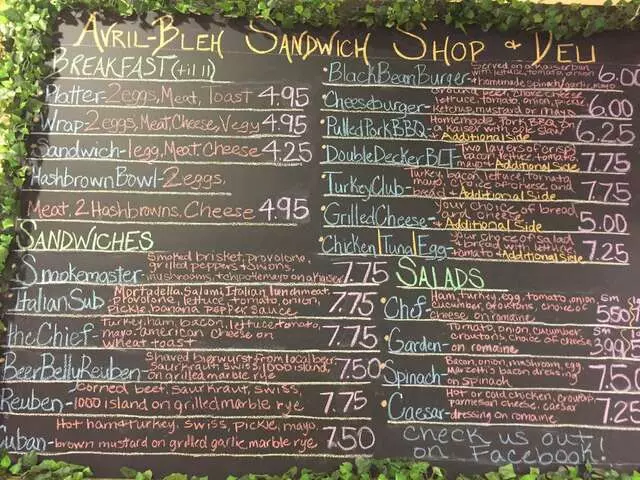 Avril-Bleh Sandwich Shop & Deli
Breakfast (til 11)
Platter-2eggs, Meat, Toast 4.95
Wrap-2eggs, Meat, Cheese, Vegy 4.95
Sandwich-1egg, Meat, Cheese 4.25
Hashbrown Bowl-2eggs,
Meat, 2 Hashbrowns, Cheese 4.95
Sandwiches
Smokemaster- Smoked brisket, provolone,
grilled peppers & onions,
mushrooms, & chipotle mayo on a kaiser 7.75
Italian Sub Mortadella, Salami, Italian lunchmeat,
provolone, lettuce, tomato, onion,
pickle, banana pepper, sauce 7.75
the Chief- Turkey, ham, bacon, lettuce, tomato,
mayo, american cheese on
wheat toast 7.75
Beer Belly Reuben- Shaved bierwurst from local beer,
saurkraut, swiss, 1000 island,
on grilled marble rye 7.50
Reuben- Corned beef, saurkraut, swiss,
1000 island on grilled marble rye 7.75
Cuban- Hot ham & turkey, swiss, pickle, mayo,
brown mustard on grilled garlic, marble rye 7.50
Black Bean Burger- Served on a kaiser bun
with lettuce, tomato, onion
& homemade spinach/garlic mayo 6.00
Cheeseburger-
lettuce, tomato, onion, pickle,
ketchup, mustard or mayo 6.00
Pulled Pork BBQ- Homemade Pork BBQ on
a kaiser with cole slaw
& Additional Side 6.25
Double Decker BLT- Two layers of crisp
bacon, lettuce, tomato,
mayo & Additional Side 7.75
Turkey Club- Turkey, bacon, lettuce, tomato,
mayo, choice of cheese and
bread & Additional Side 7.75
Grilled Cheese- your choice of bread
and cheese &
Additional Side 5.00
Chicken|Tuna|Egg- your choice of salad
& bread with lettuce,
tomato & Additional Side 7.25
Salads
Chef- Ham, turkey, egg, tomato, onion,
cucumber, croutons, choice of
cheese on romaine Sm 5.50
Garden- Tomato, onion, cucumber
croutons, choice of cheese,
on romaine Sm 3.99
Spinach- Bacon, onion, mushroom, egg,
Marzetti's bacon dressing
on spinach 7.50
Caesar- Hot or cold chicken, croutons,
parmesan cheese, caesar
dressing on romaine 7.25
Check us out
on Facebook!